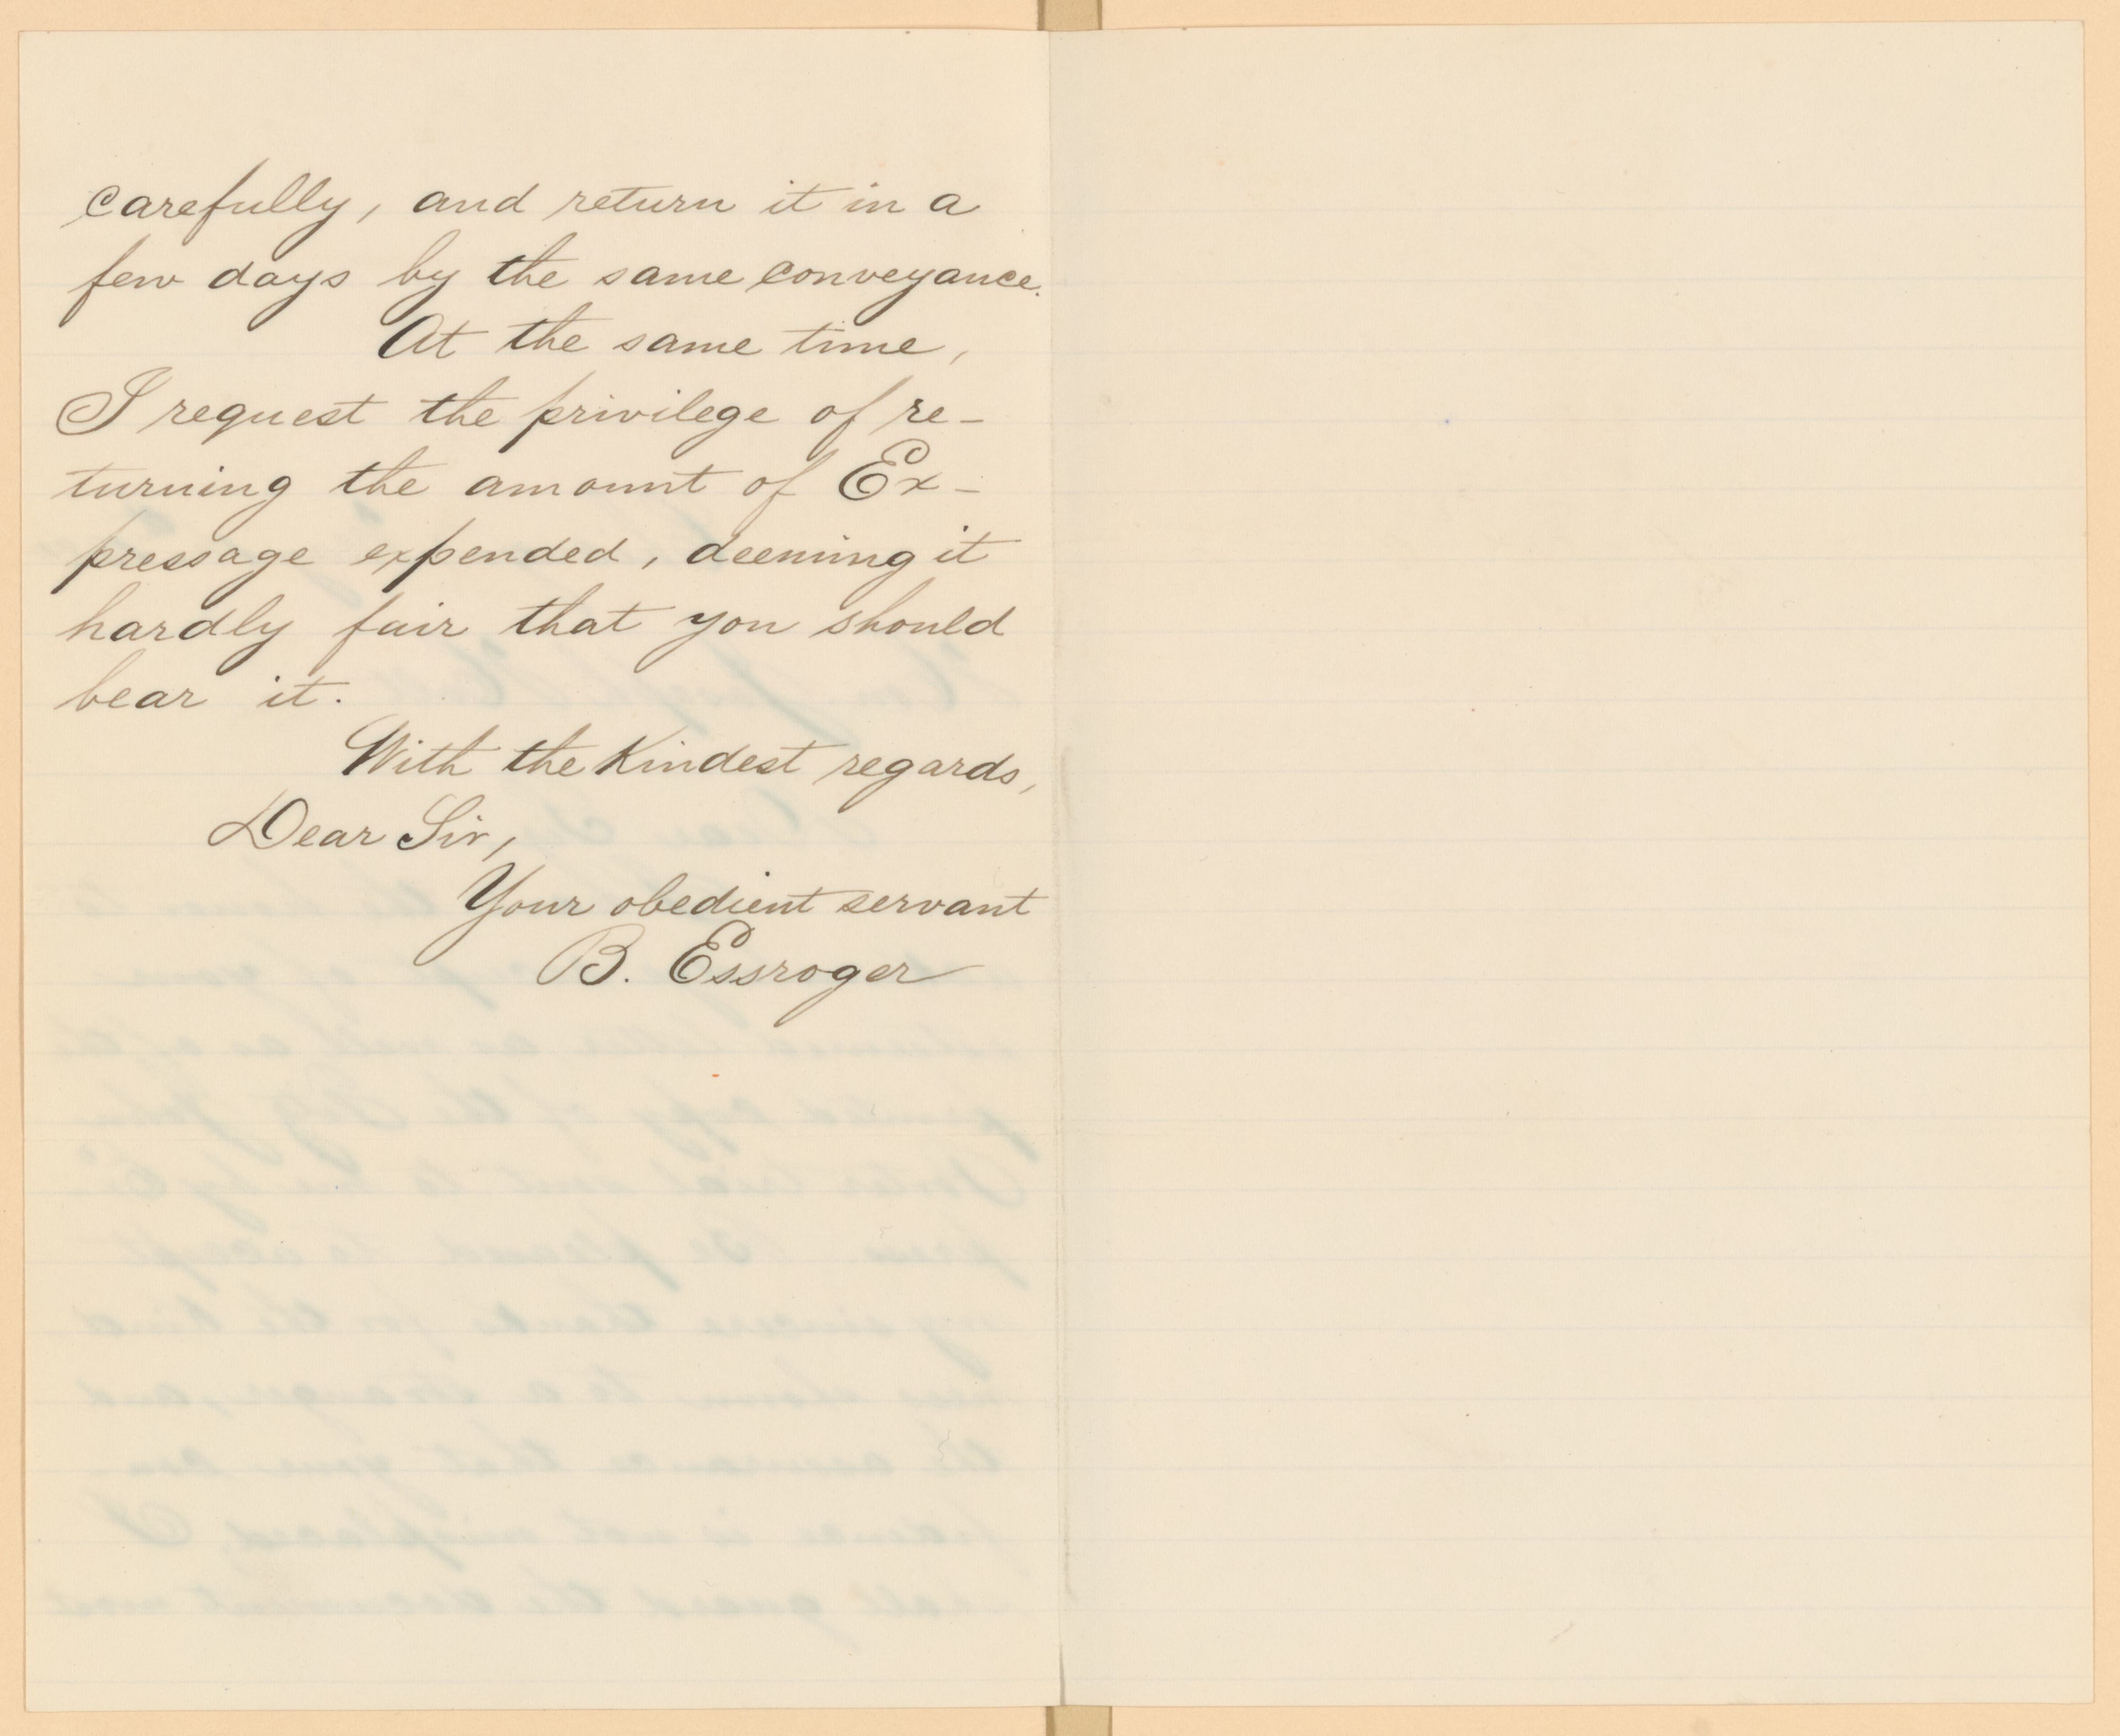 carefully, and return it in a
few days by the same conveyance.
At the same time,
I request the privilege of re-
turning the amount of Ex-
pressage expended, deeming it
hardly fair that you should
bear it.
With the Kindest regards,
Dear Sir,
Your obedient servant
B. Essroger